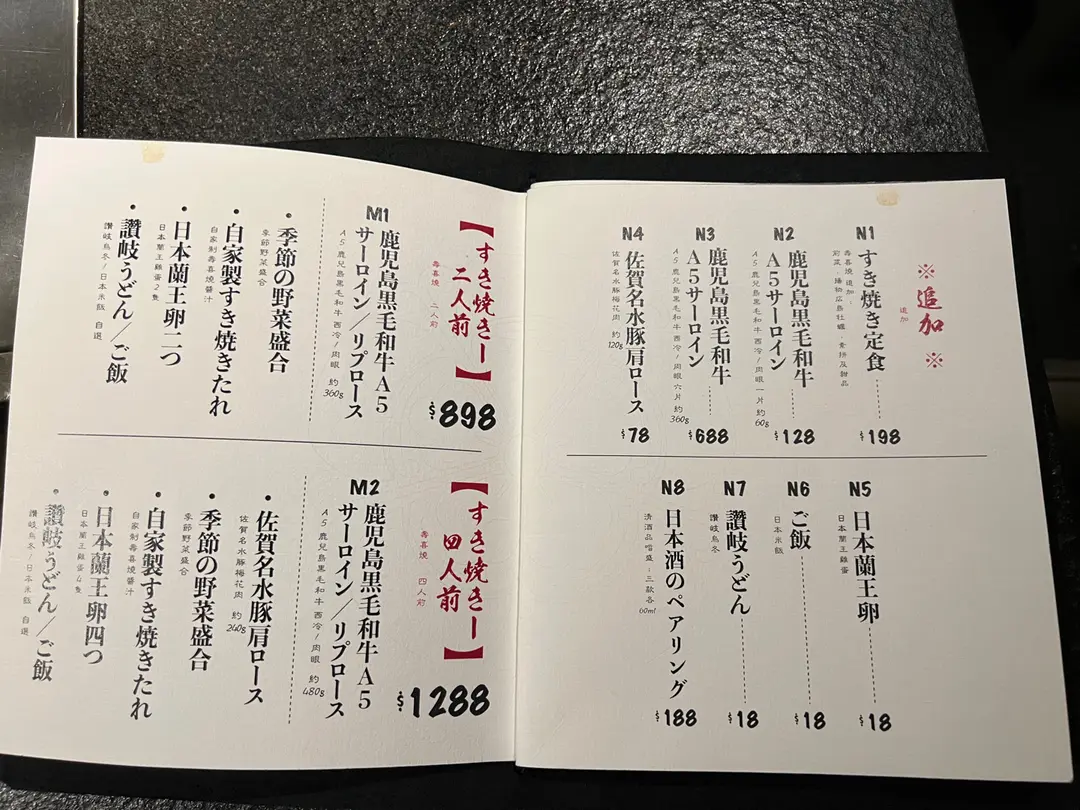 ※追加※
追加
N1
すき焼き定食
壽喜燒追加:
$198
N2
鹿児島黒毛和牛
A5サーロイン
A5鹿兒島黑毛和牛西冷/肉眼一片 約60g
$128
N3
鹿児島黒毛和牛
A5サーロイン
A5鹿兒島黑毛和牛西冷/肉眼六片 約360g
$688
N4
佐賀名水豚肩ロース
佐賀名水豚梅花肉 120g
$78
N5
日本蘭王卵
日本蘭王雞蛋
$18
N6
ご飯
日本米飯
$18
N7
讃岐うどん
讚岐烏冬
$18
N8
日本酒のペアリング
清酒品嚐盛-三款各60ml
$188
【すき焼きー二人前】
壽喜燒 二人前
$898
M1
鹿児島黒毛和牛A5
サーロイン/リブロース
A5鹿兒島黑毛和牛西冷/肉眼 約360g
・季節の野菜盛合
季節野菜盛合
・自家製すき焼きたれ
自家制壽喜燒醬汁
・日本蘭王卵二つ
日本蘭王雞蛋2隻
・讃岐うどん/ご飯
讚岐烏冬/日本米飯 自選
【すき焼きー四人前】
壽喜燒 四人前
$1288
M2
鹿児島黒毛和牛A5
サーロイン/リブロース
A5鹿兒島黑毛和牛西冷/肉眼 約480g
・佐賀名水豚肩ロース
佐賀名水豚梅花肉 約240g
・季節の野菜盛合
季節野菜盛合
・自家製すき焼きたれ
自家制壽喜燒醬汁
・日本蘭王卵四つ
日本蘭王雞蛋4隻
・讃岐うどん/ご飯
讚岐烏冬/日本米飯 自選